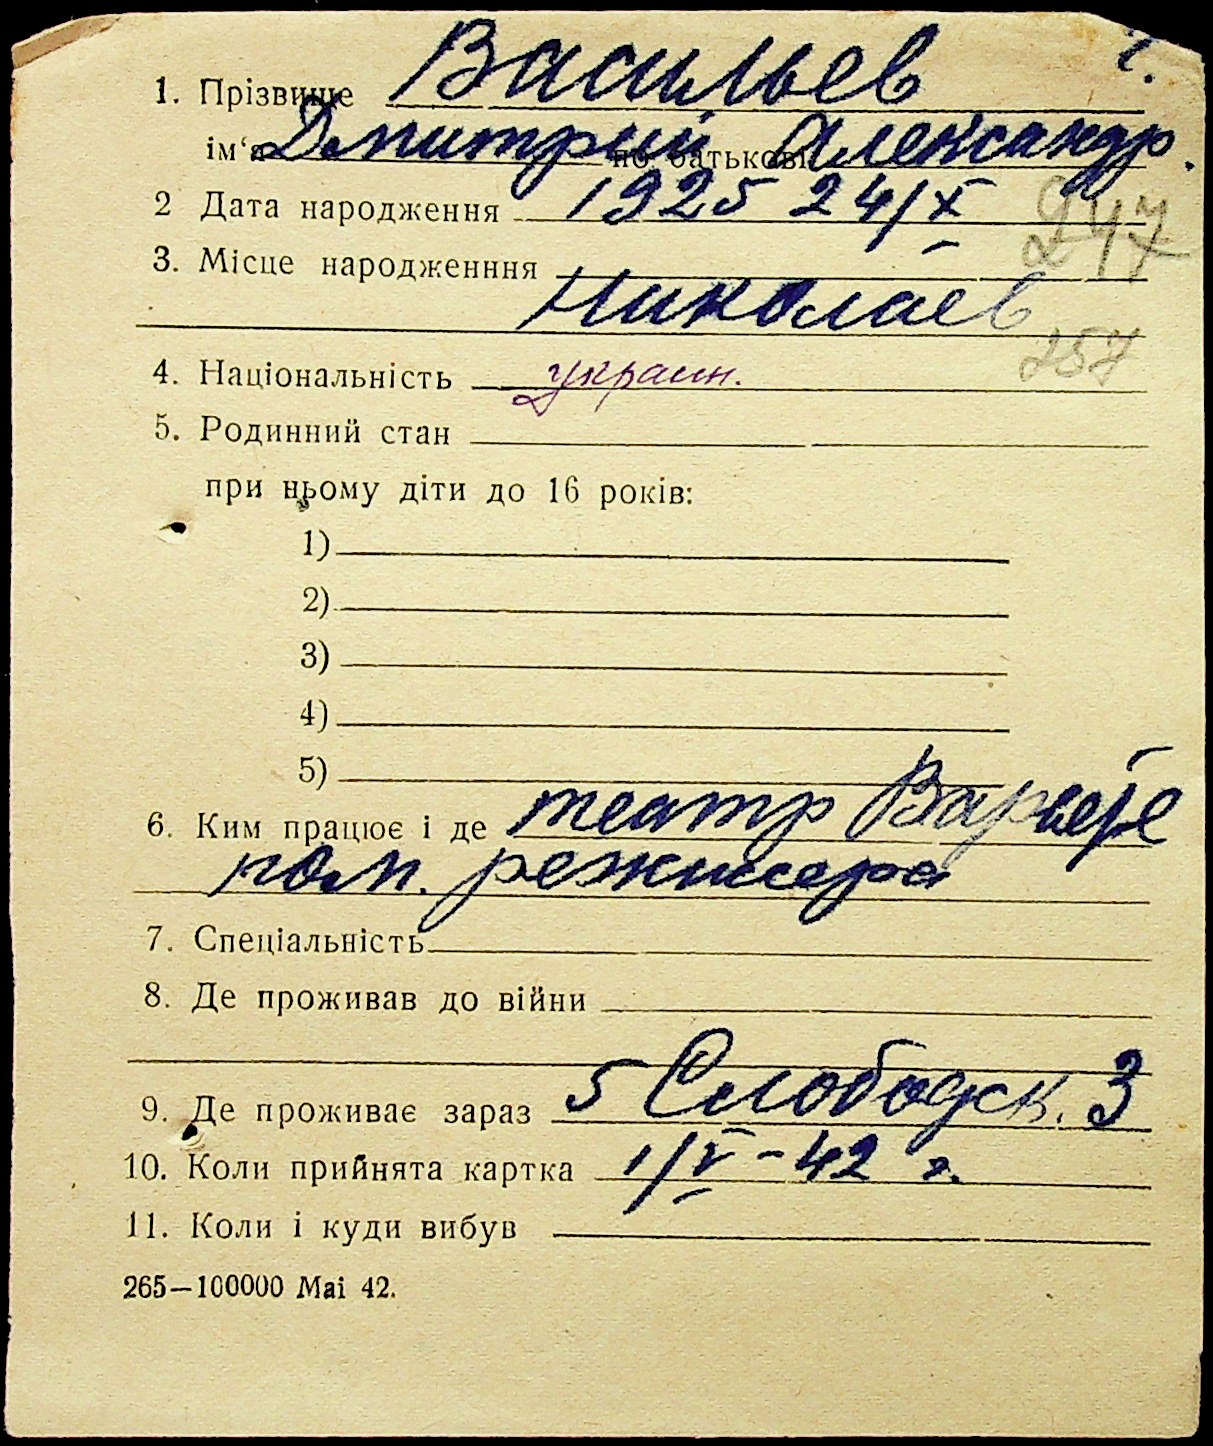 1. Прізвище Васильев
ім‘я Дмитрий по батькові Александр.
2 Дата народження 1925 24/X
247
3. Місце народженння
Николаев
257
4. Національність украин.
5. Родинний стан
при ньому діти до 16 років:
1)
2)
3)
4)
5)
6. Ким працює і де театр Варьете
пом. режисера
7. Спеціальність
8. Де проживав до війни
9. Де проживає зараз 5 Слободск. 3
10. Коли прийнята картка 1/V - 42 г.
11. Коли і куди вибув
265—100000 Mai 42.